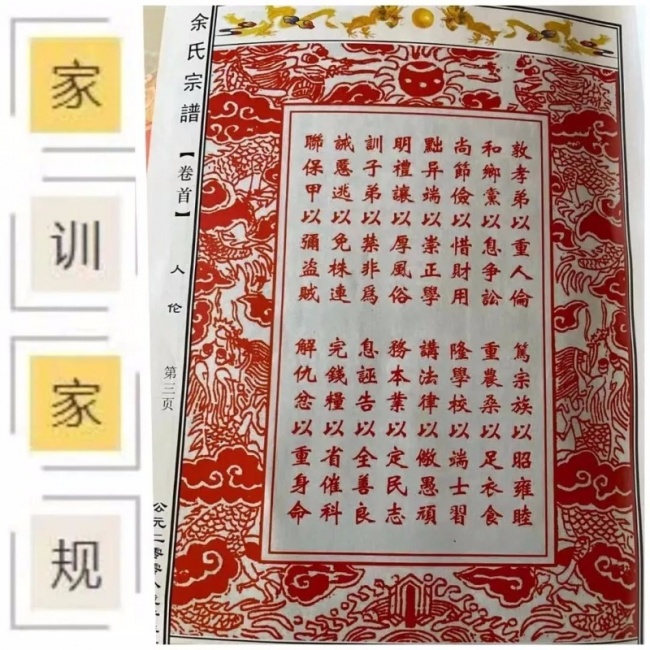 家
训
家
规
余氏宗譜【卷首】
人伦
第三页
公元二零零八
敦孝弟以重人倫
篤宗族以昭雍睦
和鄉黨以息争訟
重農桑以足衣食
尚節儉以惜財用
隆學校以端士習
黜异端以崇正學
講法律以儆愚頑
明禮讓以厚風俗
務本業以定民志
訓子弟以禁非爲
息誣告以全善良
誡逃以免株連
完錢糧以省催科
聯保甲以彌盗賊
解仇忿以重身命